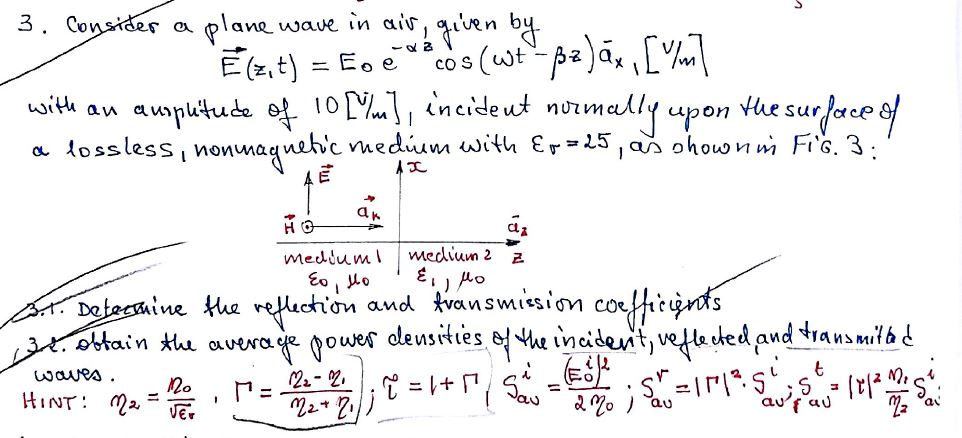 3. Consider a plane wave in air, given by
E⃗(z,t) = E₀ e^{-αz} cos(ωt - βz) āₓ, [V/m]
with an amplitude of 10 [V/m], incident normally upon the surface of
a lossless, nonmagnetic medium with εr = 25, as shown in FIG. 3:
E⃗ x
H⃗ a⃗ₖ ā_z
medium 1 medium 2 z
ε₀, μ₀ ε, μ₀
3.1. Determine the reflection and transmission coefficients
3.2. obtain the average power densities of the incident, reflected, and transmitted
waves.
HINT: η₂ = η₀/√εr, Γ = (η₂ - η₁)/(η₂ + η₁); τ = 1 + Γ; S^i_av = |E₀^i|²/2η₀; S^r_av = |Γ|². S^i_av; S^t_av = |τ|² η₁/η₂ S^i_av